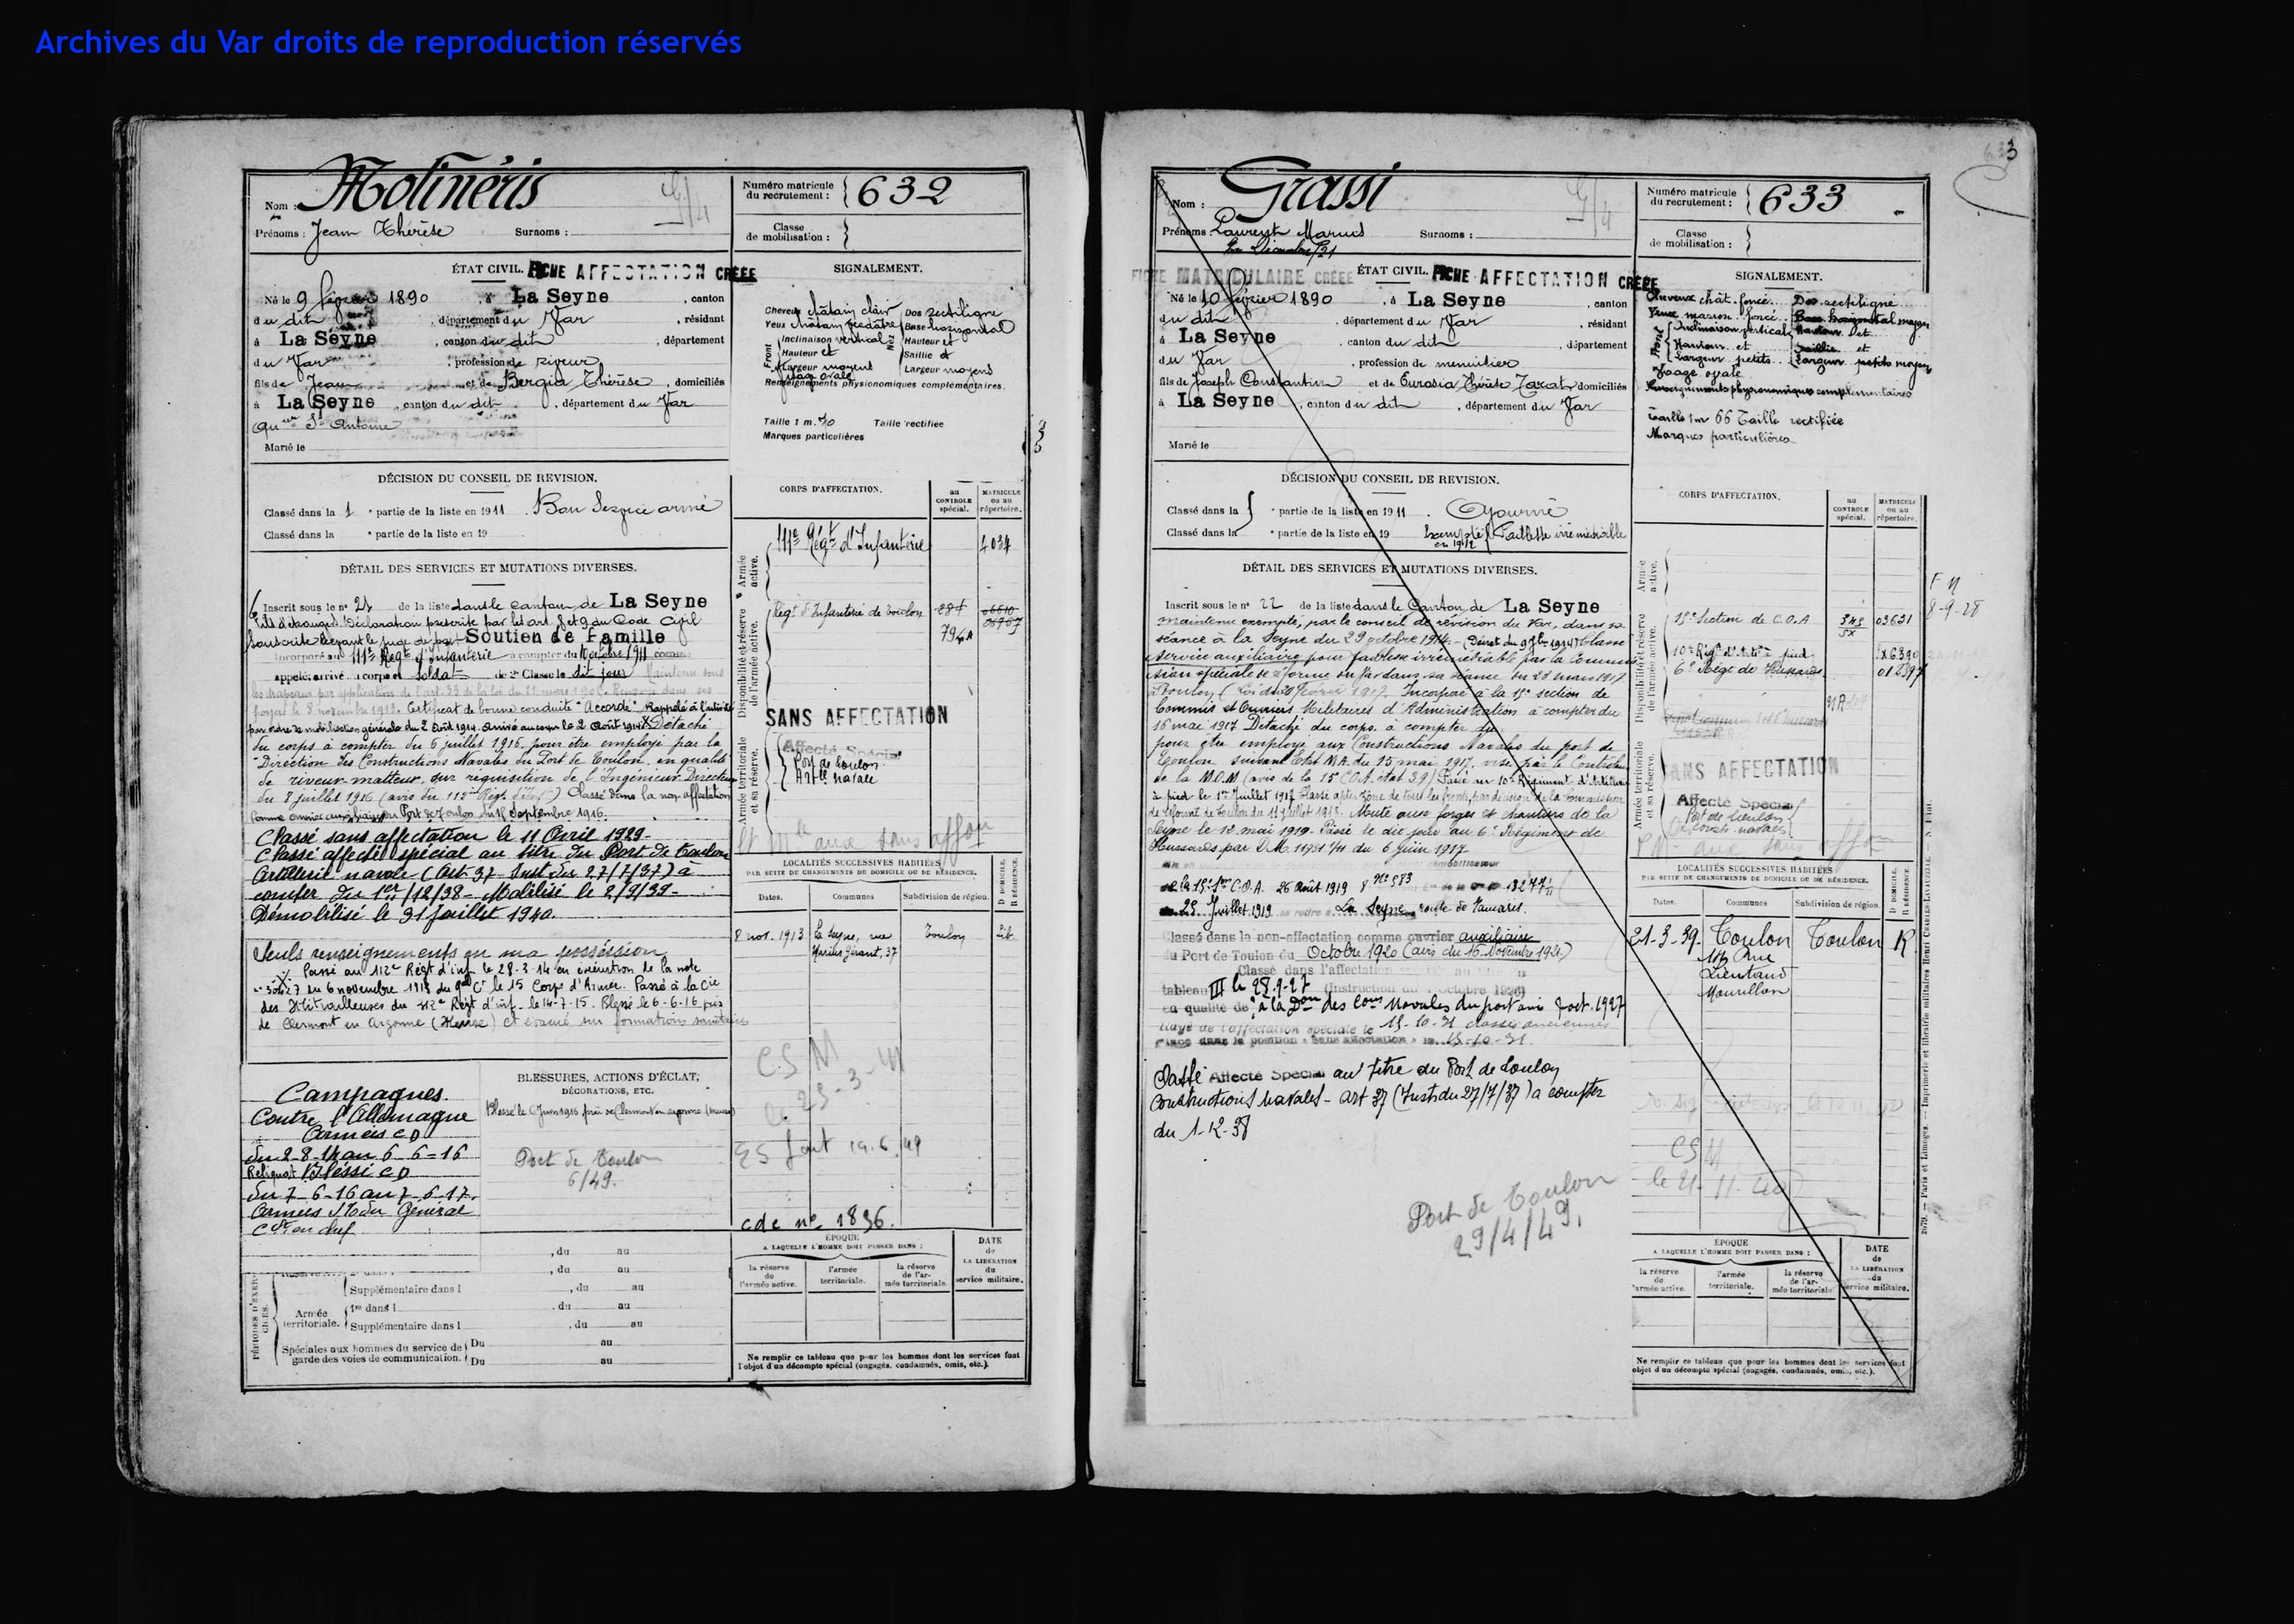 Archives du Var droits de reproduction réservés
Nom : Molinéris
Prénoms : Jean Thérèse Surnoms :
Numéro matricule du recrutement : 632
Classe de mobilisation :
ÉTAT CIVIL. FICHE AFFECTATION CRÉÉE
Né le 9 février 1890, à La Seyne, canton
du dit, département du Var, résidant
à La Seyne, canton du dit, département
du Var, profession de riveur
fils de Jean et de Bergia Thérèse, domiciliés
à La Seyne, canton du dit, département du Var
qu er St Antoine
Marié le
SIGNALEMENT.
Cheveux châtain clair Dos rectiligne
Yeux châtain verdâtre Base horizontal
Front Inclinaison vertical Nez Hauteur et
Hauteur et Saillie et
Largeur moyens Largeur moyens
Visage ovale
Renseignements physionomiques complémentaires.
Taille 1 m. 70 Taille rectifiée
Marques particulières
DÉCISION DU CONSEIL DE REVISION.
Classé dans la 1 e partie de la liste en 1911. Bon Service armé
Classé dans la e partie de la liste en 19
DÉTAIL DES SERVICES ET MUTATIONS DIVERSES.
Inscrit sous le n° 21 de la liste dans le canton de La Seyne
Fils d'étranger. Déclaration prescrite par les art. 8 et 9 du Code Civil
souscrite devant le juge de paix Soutien de Famille
Incorporé au 111e Régt d'Infanterie à compter du 10 octobre 1911 comme
appelé, arrivé au corps et soldat de 2e Classe le dit jour Maintenu sous
les drapeaux par application de l'art. 33 de la loi du 21 mars 1905. Renvoyé dans ses
foyers le 8 novembre 1913. Certificat de bonne conduite "Accordé" Rappelé à l'activité
par ordre de mobilisation générale du 2 Août 1914. Arrivé au corps le 2 Août 1914. Détaché
du corps à compter du 6 juillet 1916, pour être employé par la
Direction des Constructions Navales du Port de Toulon, en qualité
de riveur-matteur, sur réquisition de l'Ingénieur Directeur
du 8 juillet 1916 (avis du 112me Régt d'Inf.) Classé dans la non affectation
comme ouvrier auxiliaire du Port de Toulon septembre 1916.
Classé sans affectation le 11 Avril 1929-
Classé affecté spécial au titre du Port de Toulon
Artillerie navale (Art. 37 Inst du 27/7/37) à
compter du 1er/12/38 - Mobilisé le 2/9/39-
Démobilisé le 31 Juillet 1940.
Seuls renseignements en ma possession
Passé au 112e Régt d'inf le 28-3-14 en exécution de la note
du 6 novembre 1913 du Gal Ct le 15 Corps d'Armée. Passé à la Cie
des Mitrailleuses du 112e Régt d'inf. le 14-7-15. Blessé le 6-6-16 près
de Clermont en Argonne (Meuse) et évacué sur formations sanitaires
CORPS D'AFFECTATION.
au CONTROLE spécial.
MATRICULE ou au répertoire.
Armée active.
111e Régt d'Infanterie 4034
Disponibilité et réserve de l'armée active.
Régt d'Infanterie de Toulon
SANS AFFECTATION
Armée territoriale et sa réserve.
Affecté Spécial
Port de Toulon
Artie navale
LOCALITÉS SUCCESSIVES HABITÉES
PAR SUITE DE CHANGEMENTS DE DOMICILE OU DE RÉSIDENCE.
Dates. Communes Subdivision de région. D DOMICILE. R RÉSIDENCE.
8 nov. 1913 La Seyne, rue Toulon
Marius Giraud, 37
CSM
25-3-41
19.6.49
cdc n° 1836.
Campagnes.
Contre l'Allemagne
Armées CD
du 2-8-14 au 6-6-16
Reliquat Blessé CD
du 7-6-16 au 7-6-17.
Armées St du Général
Ct en chef
BLESSURES, ACTIONS D'ÉCLAT,
DÉCORATIONS, ETC.
Blessé le 6 Juin 1916 près de Clermont en argonne (Meuse)
Port de Toulon
6/49.
, du au
, du au
PÉRIODES D'EXERCICES.
Supplémentaire dans l , du au
Armée territoriale. 1re dans l , du au
Supplémentaire dans l , du au
Spéciales aux hommes du service de garde des voies de communication. Du au
Du au
ÉPOQUE
A LAQUELLE L'HOMME DOIT PASSER DANS :
la réserve de l'armée active. l'armée territoriale. la réserve de l'armée territoriale.
DATE de LA LIBÉRATION du service militaire.
Ne remplir ce tableau que pour les hommes dont les services font
l'objet d'un décompte spécial (engagés, condamnés, omis, etc.).
633
Nom : Grassi
Prénoms Laurent Marius Surnoms :
Numéro matricule du recrutement : 633
Classe de mobilisation :
FICHE MATRICULAIRE CRÉÉE ÉTAT CIVIL. FICHE AFFECTATION CRÉÉE
Né le 10 février 1890, à La Seyne, canton
du dit, département du Var, résidant
à La Seyne, canton du dit, département
du Var, profession de menuisier
fils de Joseph Constantin et de Eurasia Thérèse, domiciliés
à La Seyne, canton du dit, département du Var
Marié le
SIGNALEMENT.
Cheveux chât. foncé Dos rectiligne
Yeux marron foncé Base horizontal moyen
Front Inclinaison vertical Hauteur et
Hauteur et Saillie et
Largeur petits Largeur petits moyen
Visage ovale
Renseignements physionomiques complémentaires
Taille 1m 66 Taille rectifiée
Marques particulières
DÉCISION DU CONSEIL DE REVISION.
Classé dans la e partie de la liste en 1911. Ajourné
Classé dans la e partie de la liste en 19 Exempté en 1912 Faiblesse irrémédiable
DÉTAIL DES SERVICES ET MUTATIONS DIVERSES.
Inscrit sous le n° 22 de la liste dans le Canton de La Seyne
maintenu exempté, par le conseil de révision du Var, dans sa
séance à la Seyne du 29 octobre 1914. (Décret du 9 7bre 1914) Classé
service auxiliaire pour faiblesse irrémédiable par la Commission
spéciale de réforme du Var dans sa séance du 28 mars 1917
Toulon (Loi du 20 février 1917. Incorporé à la 15e section de
Commis et Ouvriers Militaires d'Administration à compter du
16 mai 1917 Détaché du corps, à compter du
pour être employé aux Constructions Navales du port de
Toulon suivant Etat M.A. du 15 mai 1917, visé par le Contrôle
de la M.O.M (avis de la 15e C.O.A. état 39) Passé au 10e Régiment d'Artillerie
à pied le 1er Juillet 1917 Classé apte zône de tous les fronts, par décision de la Commission
de Réforme de Toulon du 11 Juillet 1918. Muté aux forges et chantiers de la
Seyne le 12 mai 1919. Passé le dit jour au 6e Régiment de
Hussards par D.M. 11951 1/11 du 6 Juin 1917
C.O.A. 26 Août 1919
25 Juillet 1919 La Seyne route de Tamaris.
Classé dans la non-affectation comme ouvrier auxiliaire
du Port de Toulon du Octobre 1920 (avis du 16 Novembre 1921)
Classé dans l'affectation
tableau III le 28.9-27
en qualité de à la Don des Cons Navales du port
Rayé de l'affectation spéciale le 15-10-31 classes anciennes
Placé dans la position « sans affectation » le 15-10-31
Classé Affecté Spécial au titre du Port de Toulon
Constructions navales - art 37 (Inst du 27/7/37) à compter
du 1-12-38
Port de Toulon
29/4/49.
CORPS D'AFFECTATION.
au CONTROLE spécial.
MATRICULE ou au répertoire.
Armée active.
Disponibilité et réserve de l'armée active.
15e Section de C.O.A 03631
10e Régt d'Artie à pied
6e Régt de Hussards
8-9-28
Armée territoriale et sa réserve.
SANS AFFECTATION
Affecté Spécial
Port de Toulon
Const. navales
LOCALITÉS SUCCESSIVES HABITÉES
PAR SUITE DE CHANGEMENTS DE DOMICILE OU DE RÉSIDENCE.
Dates. Communes Subdivision de région. D DOMICILE. R RÉSIDENCE.
21-3-39. Toulon Toulon R
Rue
Lieutaud
Mourillon
CSM
le 21-11-40
ÉPOQUE
A LAQUELLE L'HOMME DOIT PASSER DANS :
la réserve de l'armée active. l'armée territoriale. la réserve de l'armée territoriale.
DATE de LA LIBÉRATION du service militaire.
Ne remplir ce tableau que pour les hommes dont les services font
objet d'un décompte spécial (engagés, condamnés, omis, etc.).
2079. — Paris et Limoges. — Imprimerie et librairie militaires Henri CHARLES-LAVAUZELLE.